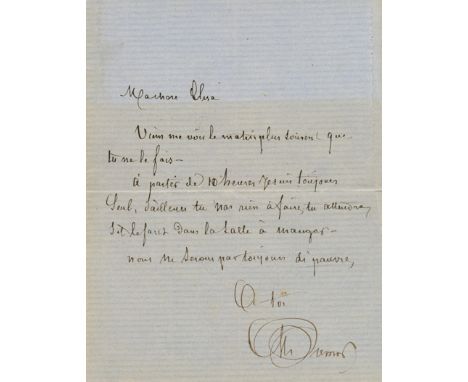 Ma chère Élisa
Viens me voir le matin plus souvent que
tu ne le fais —
à partir de 10 heures je suis toujours
seul, d'ailleurs tu n'as rien à faire, tu attendras,
s'il le faut dans la salle à manger —
nous ne serons pas toujours di pauvre,
À toi